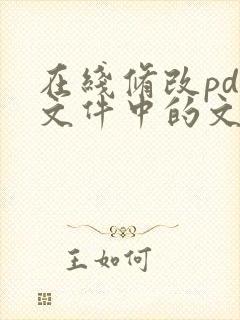 在綫脩改pd
文件中的文
王如何